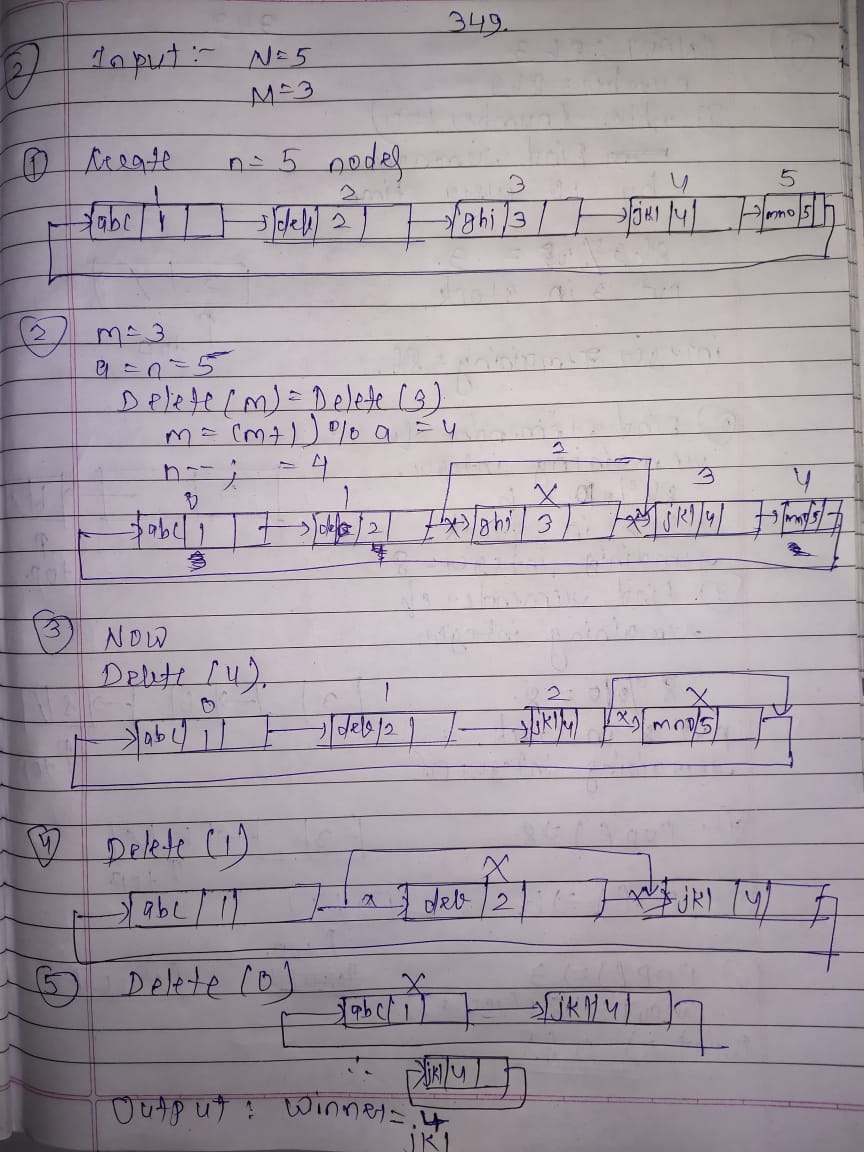 349.
② Input :- N=5
M=3
① Create n=5 nodes
1 2 3 4 5
abc 1 def 2 ghi 3 jkl 4 mno 5
② m=3
a=n=5
Delete(m)=Delete(3)
m=(m+1)%a =4
n--; =4
2
0 1 X 3 4
abc 1 x ghi 3 x jkl 4 mno 5
③ NOW
Delete (4).
0 1 2 X
abc 1 def 2 jkl 4 x mno 5
④ Delete (1)
X
abc 1 x def 2 x jkl 4
⑤ Delete (0)
X
abc 1 jkl 4
∴ jkl 4
Output : Winner= 4
jkl